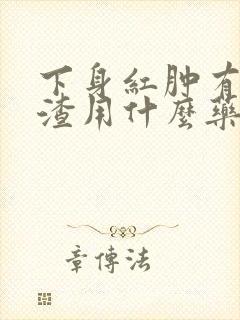 下身紅肿有
渣用什麼藥
章傳法